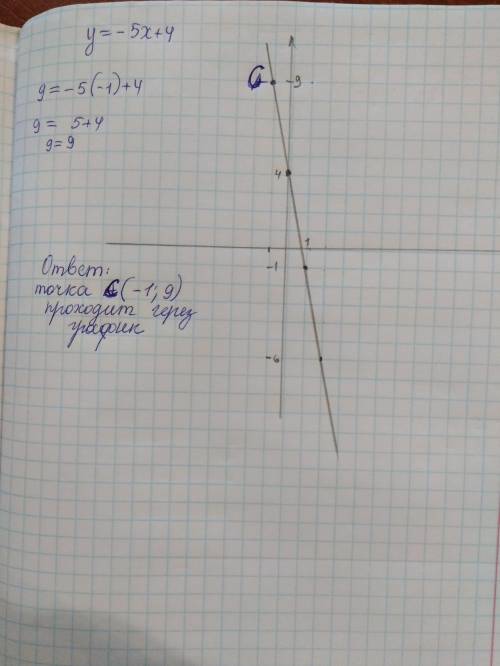 y = -5x+4
9 = -5(-1)+4
9 = 5+4
9 = 9
Ответ:
точка C(-1; 9)
проходит через
график
C
-9
4
1
-1
-6